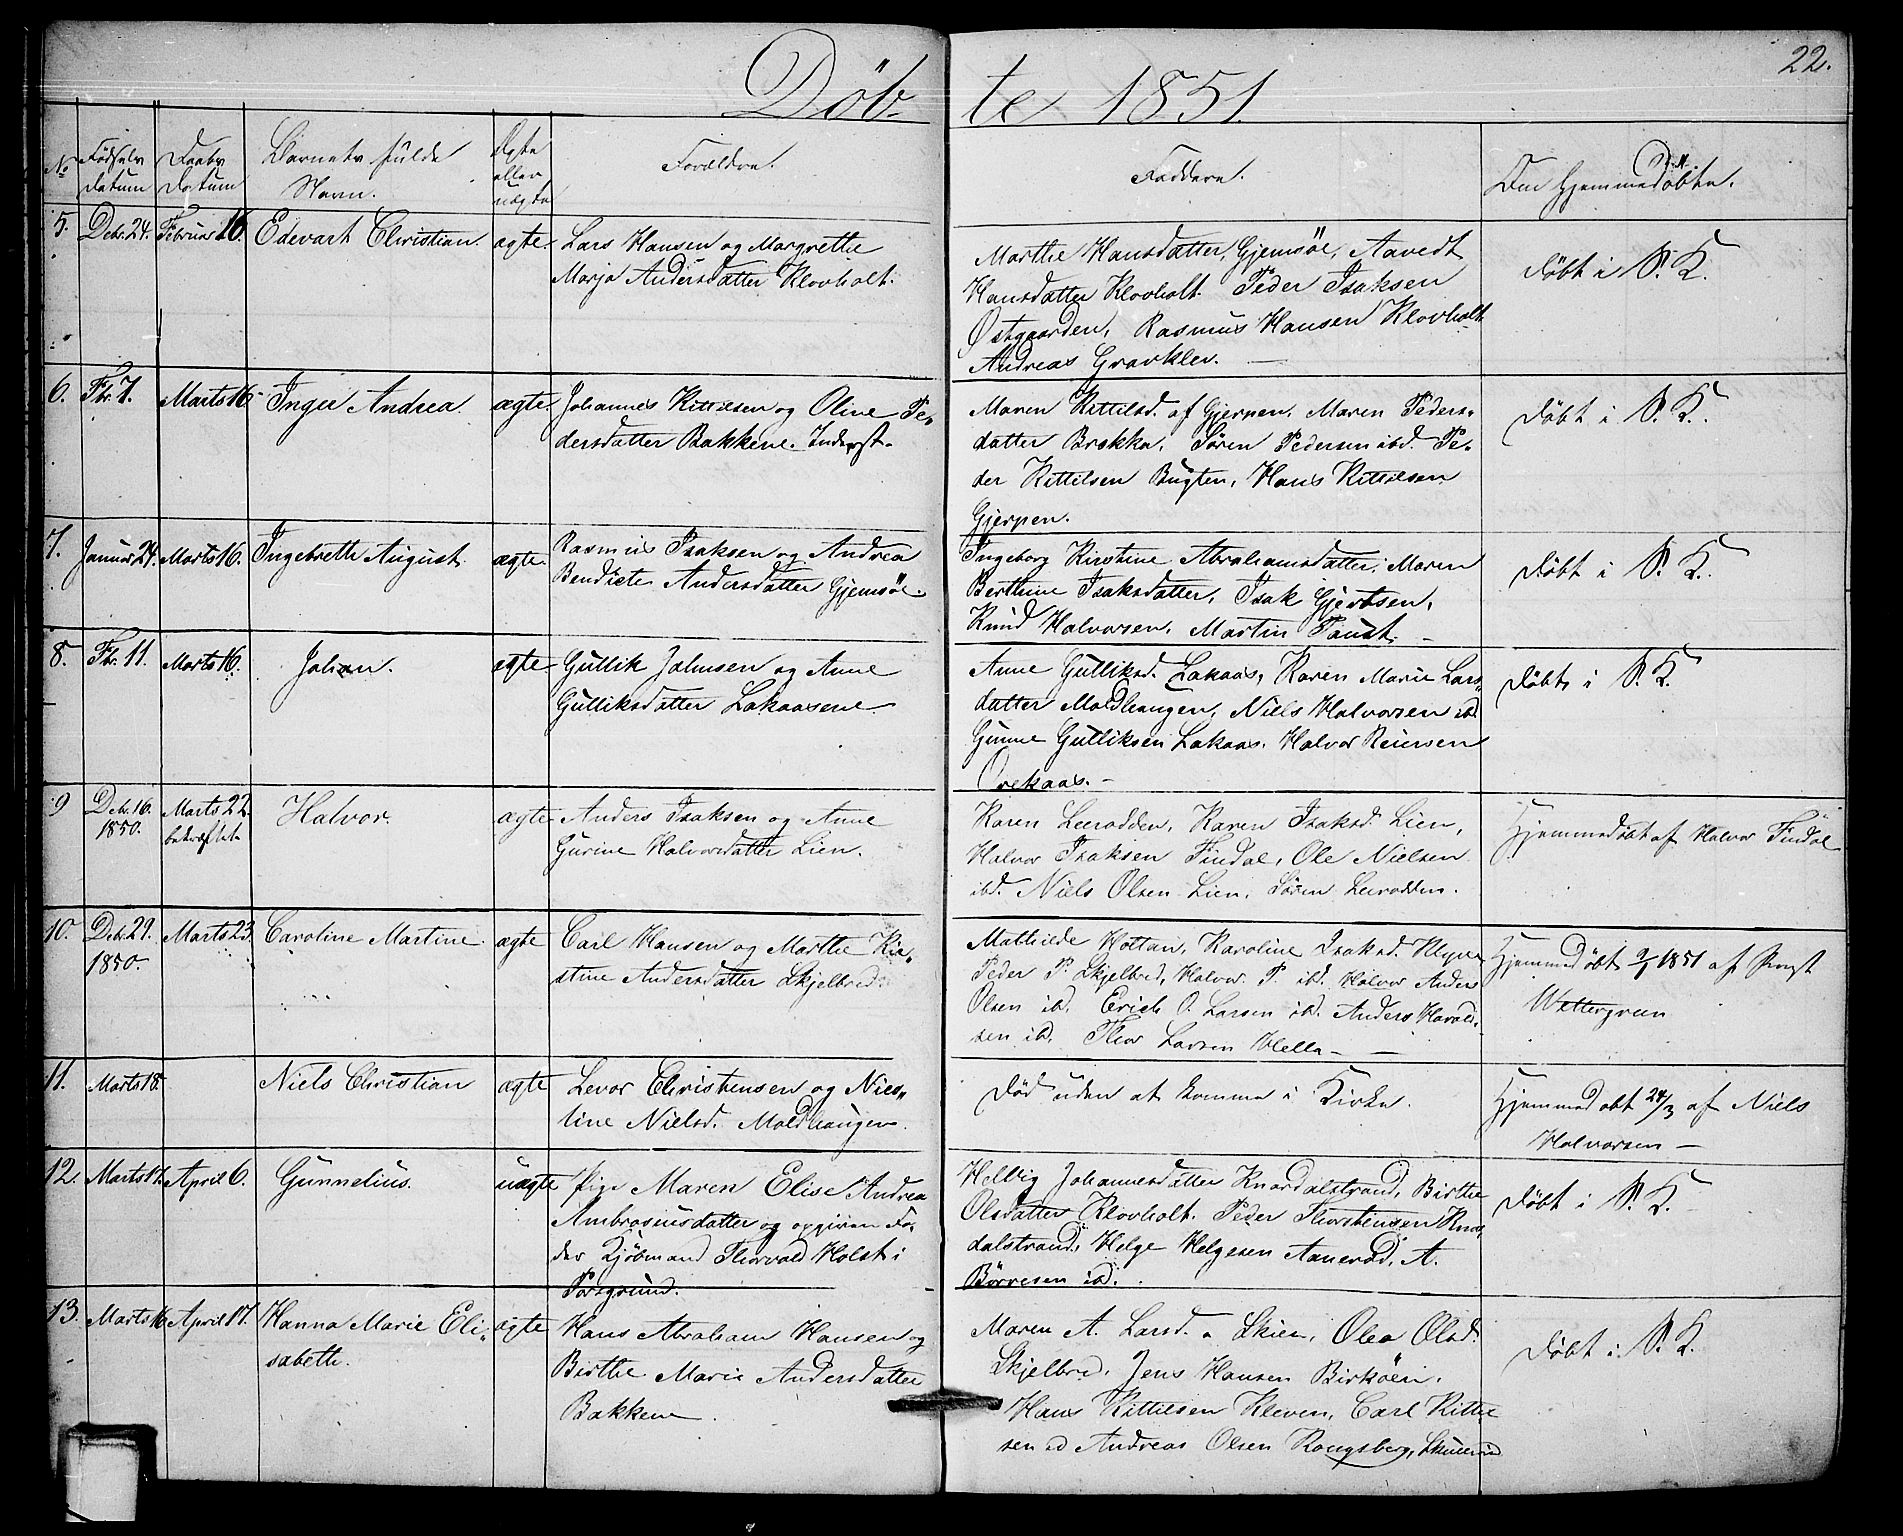 22.
Döbte 1851.
No Fødsels Datum Daabs Datum Barnets fulde Navn. Ægte eller uægte Forældre. Faddere. Om Hjemmedöbte.
5. Debr. 24. Februar 16. Edevart Christian. ægte Lars Hansen og Margrethe
Marja Andersdatter Klovholt.
Marthe Hansdatter, Gjemsöe, Aavedt
Hansdatter Klovholt. Peder Isaksen
Østgaarden, Rasmus Hansen Klovholt
Andreas Gravklev. —
Döbt i P. K.
6. Fbr. 7. Marts 16 Inger Andrea. ægte. Johannes Kittilsen og Oline Pe-
dersdatter Bakkene. Inderst.
Maren Kittilsd. af Gjerpen, Maren Peders-
datter Brekka, Sören Pedersen ibd. Pe-
der Kittilsen Bugten, Hans Kittilsen
Gjerpen.
Döbt i P. K.
7. Januar 24. Marts 16. Ingebreth August. ægte Rasmus Isaksen og Andrea
Bendicte Andersdatter Gjemsöe.
Ingeborg Kirstine Abrahamsdatter, Maren
Berthine Isaksdatter, Isak Gjertsen,
Knud Halvorsen, Martin Faust. —
Döbt i P. K.
8. Fbr. 11. Marts 16. Johan. ægte Gullik Johnsen og Anne
Gulliksdatter Lakaasene.
Anne Gulliksd. Lakaas, Karen Marie Lars-
datter Moldhaugen, Niels Halvorsen ibd.
Gunne Gulliksen Lakaas. Halvor Reiersen
Orekaas. —
Döbt i P. K.
9 Debr. 16. 1850. Marts 22. bekræftet Halvor. ægte Anders Isaksen og Anne
Gurine Halvorsdatter Lien.
Karen Leerodden, Karen Isaksd. Lien,
Halvor Isaksen Findal, Ole Nielsen
ibd. Niels Olsen Lien, Sören Leerodden.
Hjemmedöbt af Halvor Findal
10. Debr. 29. 1850. Marts 23. Caroline Martine. ægte Carl Hansen og Marthe Kir-
stine Andersdatter Skjelbred.
Mathilde Hottan, Karoline Isaksd.
Peder P. Skjelbred, Halvor P. ibd. Halvor Anders
Olsen ibd. Erich O. Larsen ibd. Anders Harald-
sen ibd. Thor Larsen Hella —
Hjemmedöbt 9/1 1851 af Prost
Wettergreen
11. Marts 18. Niels Christian ægte Levor Christensen og Niel-
line Nielsd. Moldhaugen.
Död uden at komme i Kirke.
Hjemmedöbt 24/3 af Niels
Halvorsen —
12. Marts 17. April 6. Gunnelius. uægte Pige Maren Elise Andrea
Ambrosiusdatter og opgiven Fa-
der Kjöbmand Thorvald Holst i
Porsgrund.
Helvig Johannesdatter Knardalstrand, Birthe
Olsdatter Klovholt. Peder Thorstensen Knar-
dalstrand, Helge Helgesen Aaneröd, A.
Börresen ibd.
Döbt i P. K.
13. Marts 16 April 17. Hanna Marie Eli-
sabeth. ægte Hans Abraham Hansen og
Birthe Marie Andersdatter
Bakkene.
Maren A. Larsd. a Skien, Olea Olsd.
Skjelbred, Jens Hansen Birköen.
Hans Kittilsen Kleven, Carl Kittel
sen ibd Andreas Olsen Rongsberg,
Döbt i P. K.